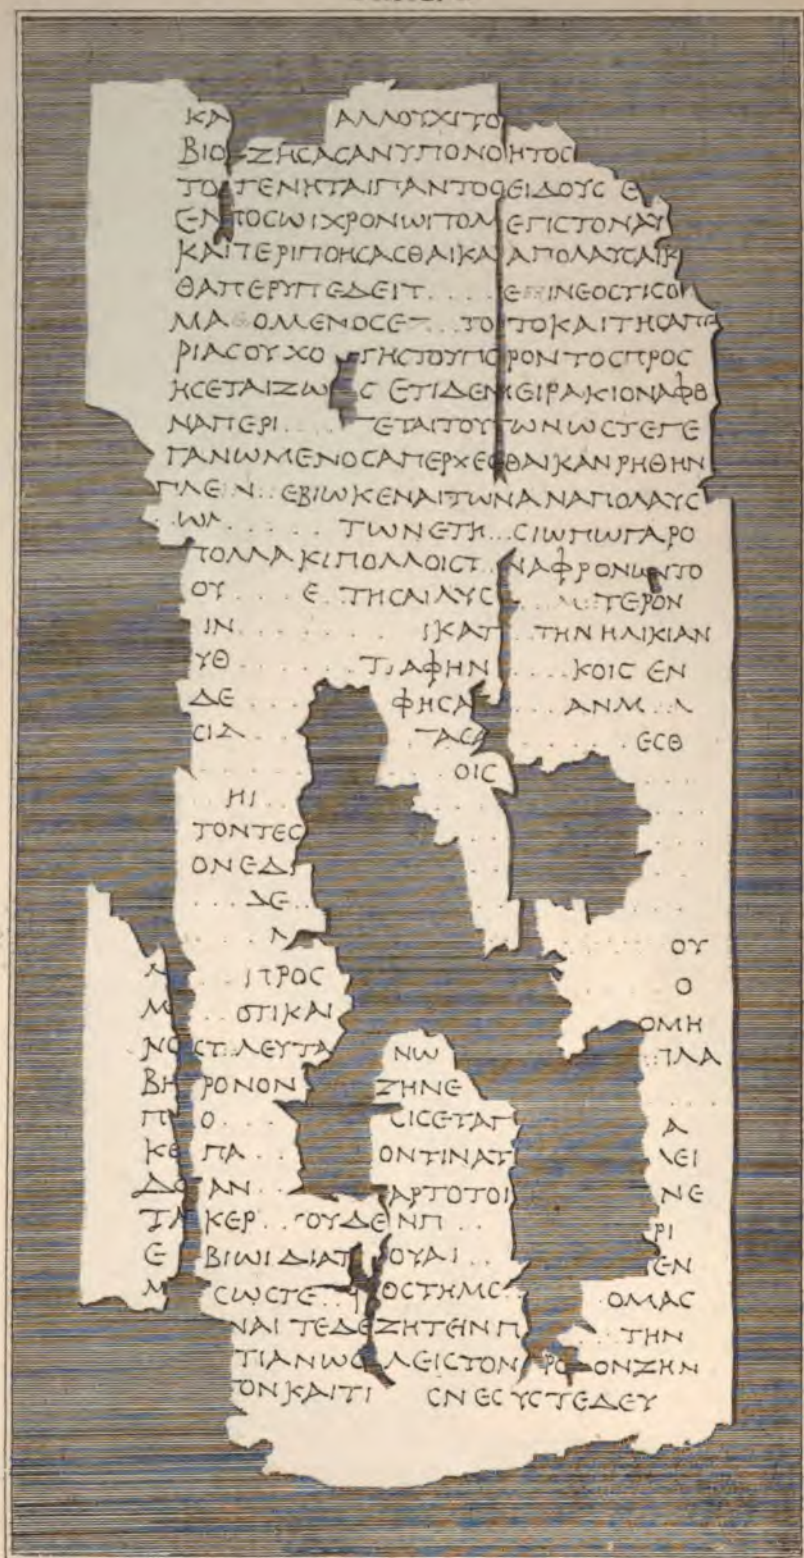 ΚΑ ΑΛΛΟΥΧΙΤΟ
ΒΙΟ ΖΗCΑCΑΝΥΠΟΝΟΗΤΟC
ΤΟ ΓΕΝΗΤΑΙΠΑΝΤΟCΕΙΔΟΥC Ε
CΕΝΤΟCΩΙΧΡΟΝΩΙΤΟΜΕΓΙCΤΟΝΑΓ
ΚΑΙΠΕΡΙΠΟΗCΑCΘΑΙΚΑ ΑΠΟΛΑΥCΑΙΚ
ΘΑΠΕΡΥΠΕΔΕΙΤ....Ε ΙΝΕΟCΤΙCΟΝ
ΜΑ ΟΜΕΝΟCΕ ..ΤΟ ΤΟΚΑΙΤΗCΑΠΕ
ΡΙΑCΟΥΧΟ ΓΗCΤΟΥΠΟΡΟΝΤΟCΠΡΟC
ΗCΕΤΑΙΖΩ C ΕΤΙΔΕΜΕΙΡΑΚΙΟΝΑΦΘ
ΝΑΠΕΡΙ.... ΓΕΤΑΙΤΟΥΤΩΝΩCΤΕΓΕ
ΓΑΝΩΜΕΝΟCΑΠΕΡΧΕCΘΑΙΚΑΝΡΗΘΗΝ
ΠΛΕΙ Ν..ΕΒΙΩΚΕΝΑΙΤΩΝΑΝΑΠΟΛΑΥC
ΩΛ..... ΤΩΝΕΤΗ...CΙΩΠΩΓΑΡΟ
ΤΟΛΛΑΚΙΠΟΛΛΟΙCΤ ΝΑΦΡΟΝΩΝΤΟ
ΟΥ ... Ε.ΤΗCΑΙΛΥC ....Μ ΤΕΡΟΝ
ΙΝ....... ΙΚΑΤ ..ΤΗΝΗΛΙΚΙΑΝ
ΥΘ...... ΤΙΑΦΗΝ ....ΚΟΙC ΕΝ
ΔΕ.... ΦΗCΑ .... ΑΝΜ..Λ
CΙΔ.... ΤΑCΑ ........ΕCΘ
ΟΙC
ΗΙ
ΤΟΝΤΕC
ΟΝΕΔΙ
...ΔΕ...
Λ ΟΥ
Ν ΙΠΡΟC Ο
Μ ΟΤΙΚΑΙ ΟΜΗ
ΝΟCΤ.ΛΕΥΤΑ ΝΩ ..ΠΛΑ
ΒΗ ΡΟΝΟΝ ΖΗΝΕ
Π Ο... CΙCΕΤΑΠ Α
ΚΕ ΠΑ... ΟΝΤΙΝΑΤ ΛΕΙ
ΔΟ ΑΝ... ΑΡΤΟΤΟΙ ΝΕ
ΤΑ ΚΕΡ...ΟΥΔΕΝΠ.. ΡΙ
Ε ΒΙΩΙΔΙΑΤ ΟΥΑΙ.. ΕΝ
Μ CΩCΤΕ.. ΟCΤΗΜC.. ΟΜΑC
ΝΑΙΤΕΔΕΖΗΤΕΙΝΠ ...ΤΗΝ
ΤΙΑΝΩ ΛΕΙCΤΟΝ ΡΟ ΟΝΖΗΝ
ΤΟΝΚΑΙΤΙ CΝΕCΥCΤΕΔΕΥ